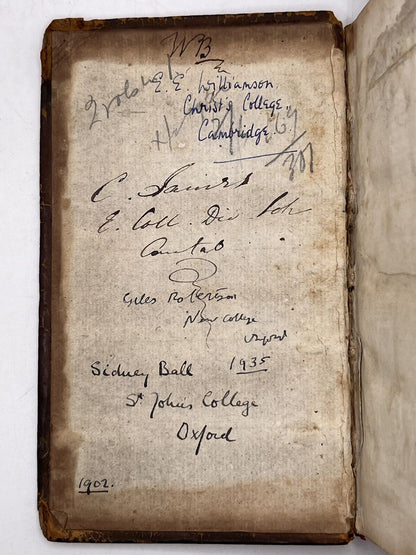 WB
2 vols
E. E. Williamson.
Christ's College,
Cambridge.
301
C. Saints
E. Coll. Div. Sch
Cantab
Giles Robertson
New College
Oxford
1935
Sidney Ball
St John's College
Oxford
1902.